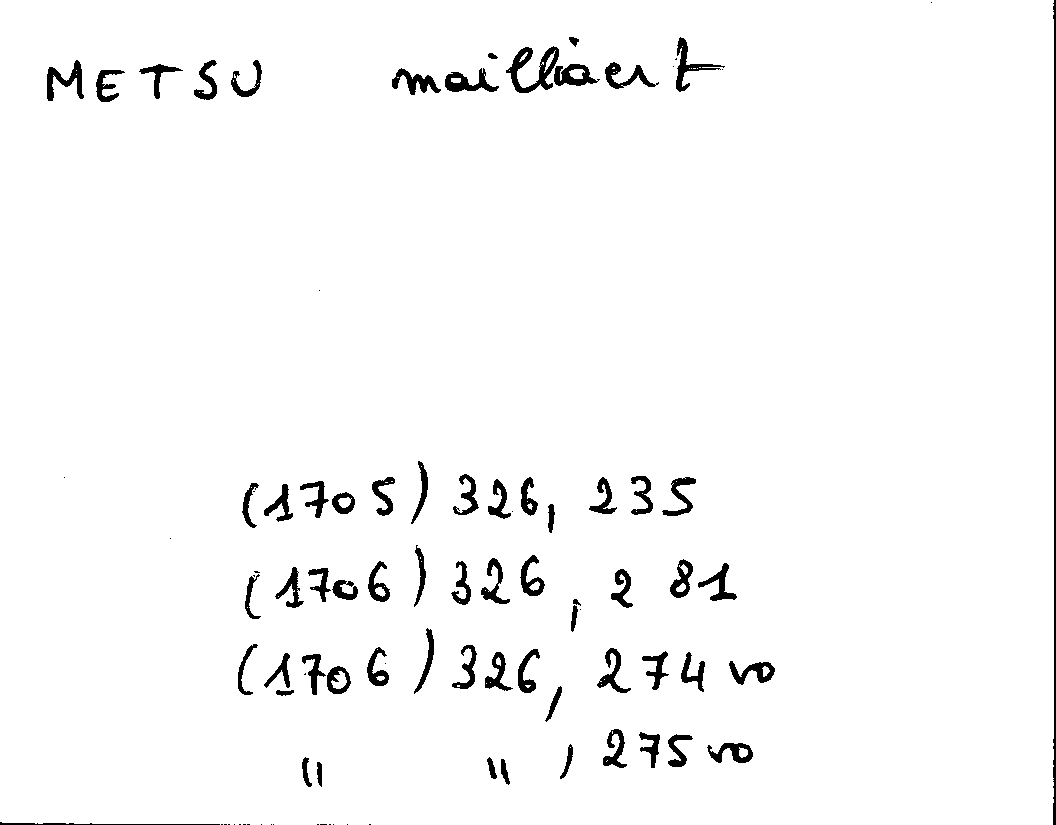 METSU mailliaert
(1705) 326, 235
(1706) 326, 281
(1706) 326, 274 vo
" ", 275 vo